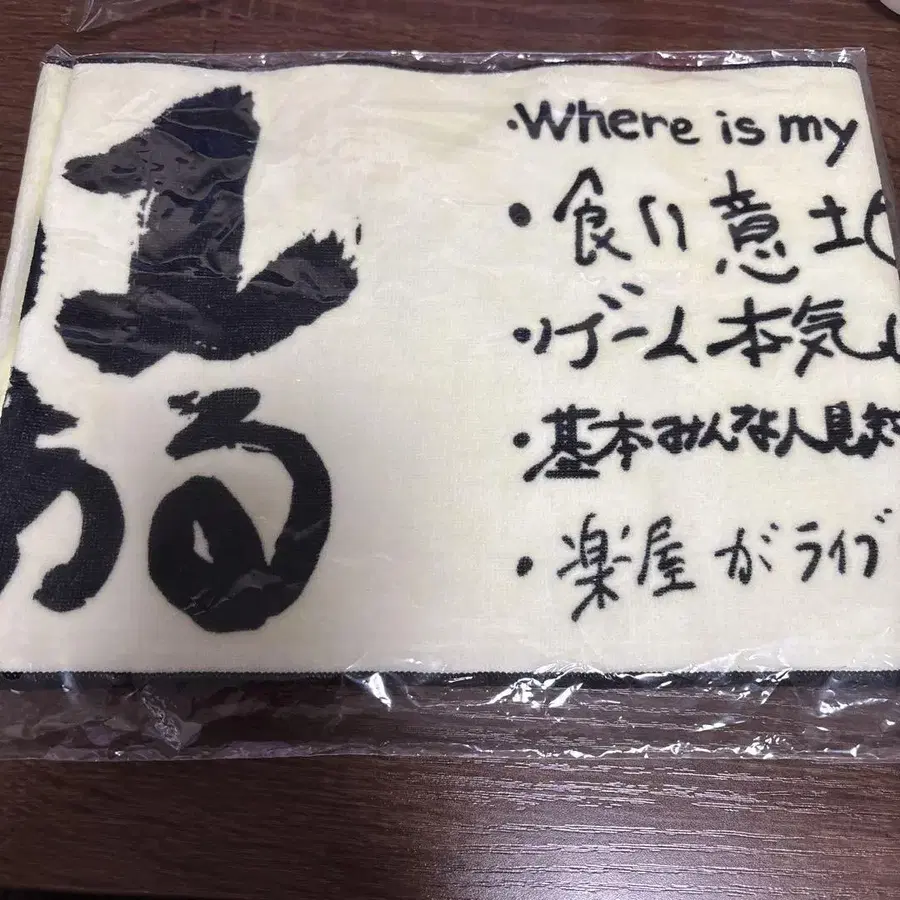 る
・Where is my
・食い意
・ゲーム本気
・基本みんな人見知
・楽屋がライブ